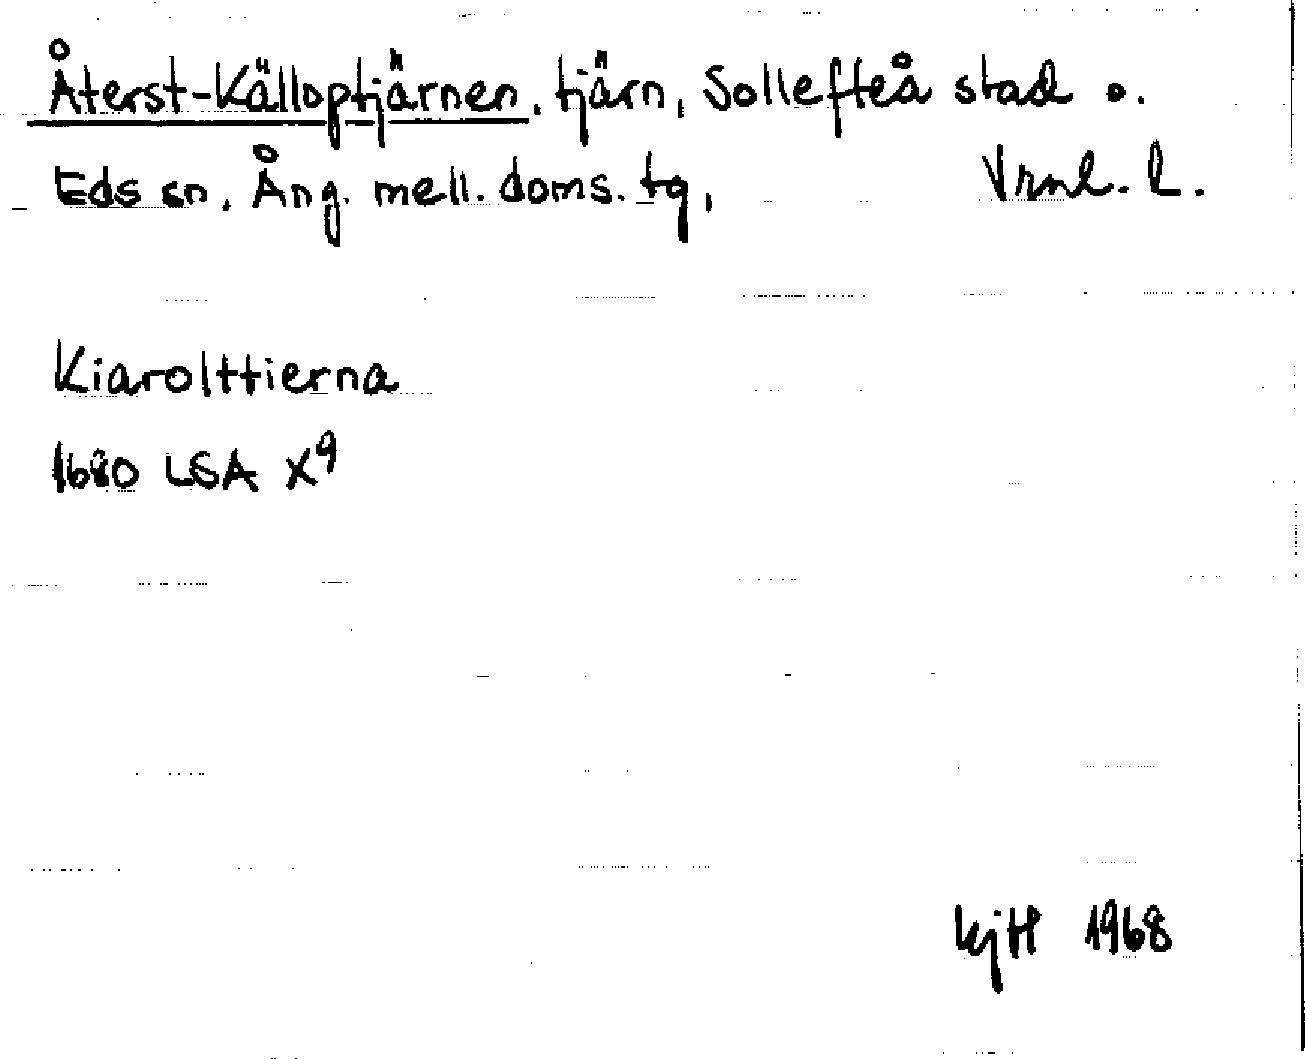 Återst-Källoptjärnen, tjärn, Sollefteå stad o.
Eds sn, Ång. mell. doms. tg, Vrnl. l.
Kiarolttierna
1680 LSA X9
kjH 1968